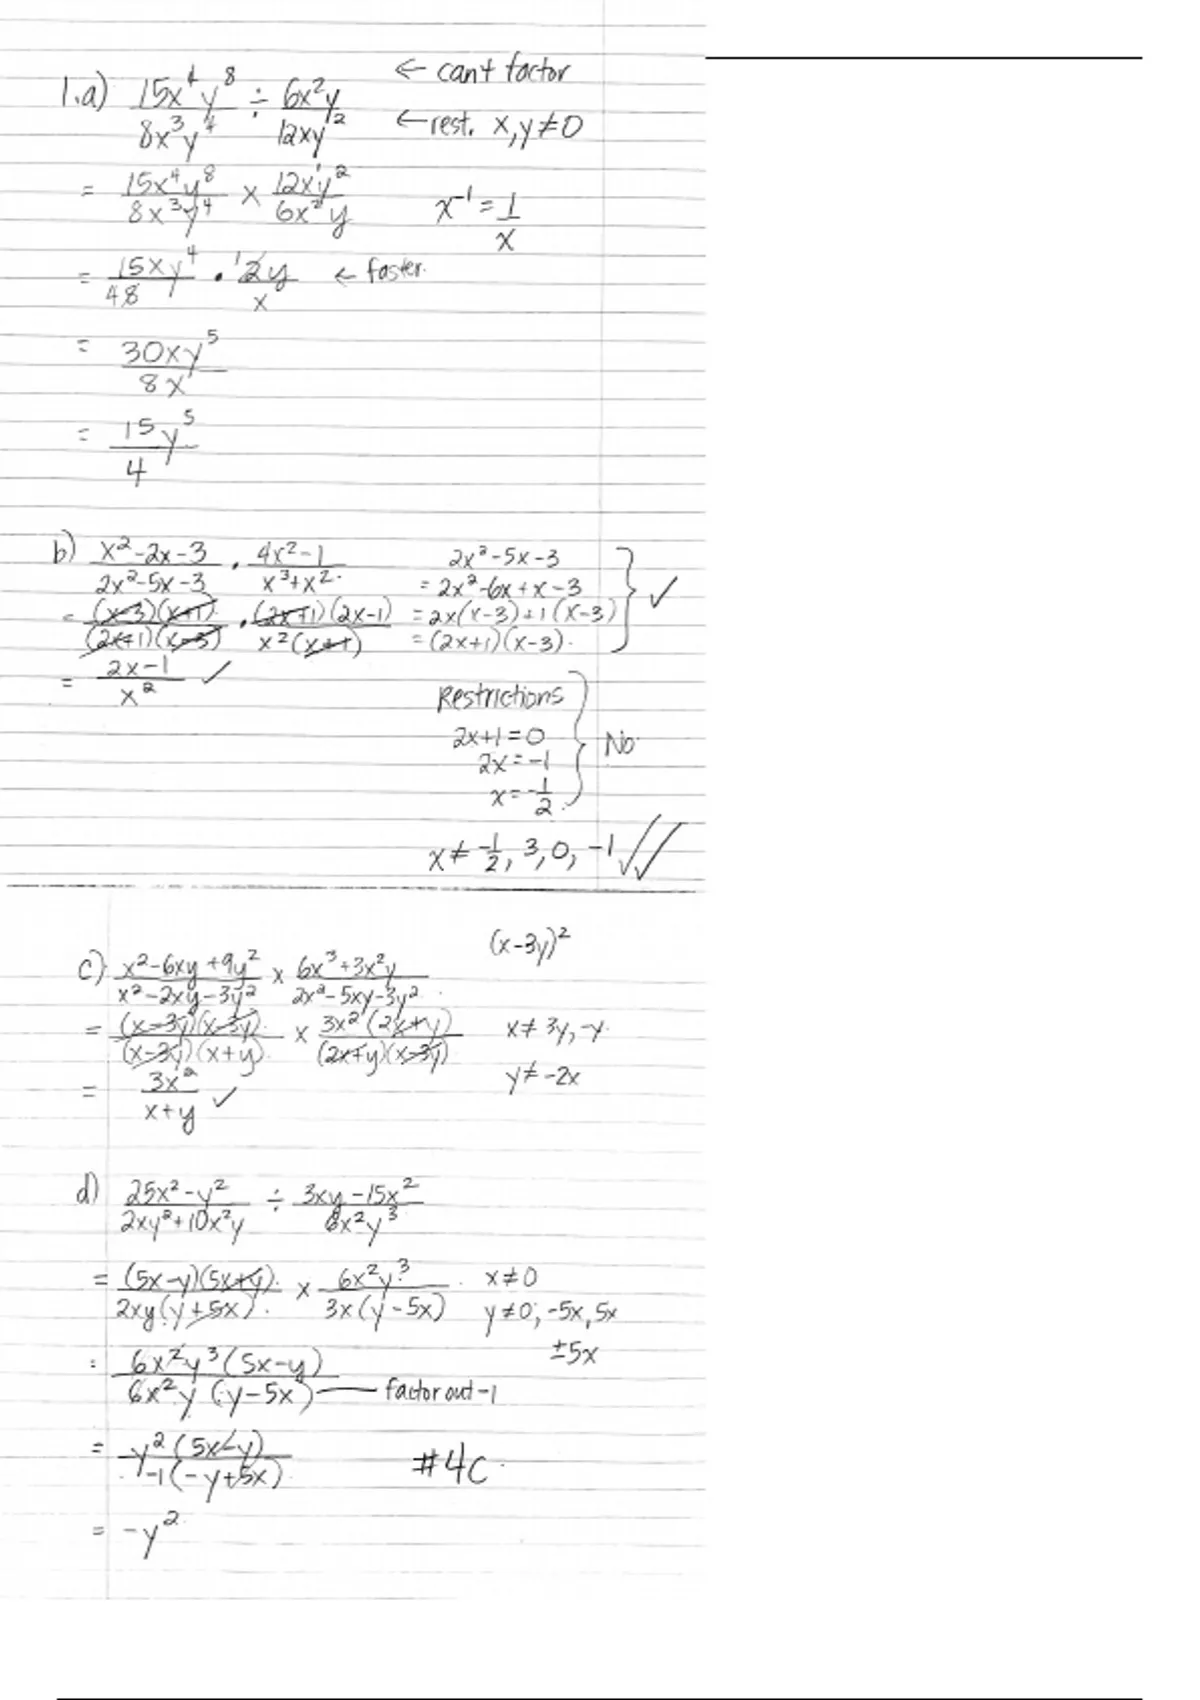 1.a) 15x⁴y⁸/8x³y⁴ ÷ 6x²y/12xy² ← can't factor
← rest. x,y≠0
= 15x⁴y⁸/8x³y⁴ × 12xy²/6x²y x⁻¹ = 1/x
= 15xy⁴/48 • ¹2y/x ← faster.
= 30xy⁵/8x
= 15y⁵/4
b) x²-2x-3/2x²-5x-3 • 4x²-1/x³+x² 2x²-5x-3
= 2x²-6x+x-3
= (x-3)(x+1)/(2x+1)(x-3) • (2x+1)(2x-1)/x²(x+1) = 2x(x-3)+1(x-3) ✓
= (2x+1)(x-3).
= 2x-1/x² ✓
Restrictions
2x+1=0
2x=-1 No
x=-1/2
x≠ -1/2, 3, 0, -1 ✓✓
(x-3y)²
c) x²-6xy+9y²/x²-2xy-3y² × 6x³+3x²y/2x²-5xy-3y²
= (x-3y)(x-3y)/(x-3y)(x+y) × 3x²(2x+y)/(2x+y)(x-3y) x≠3y,-y
= 3x²/x+y ✓ y≠-2x
d) 25x²-y²/2xy²+10x²y ÷ 3xy-15x²/6x²y³
= (5x-y)(5x+y)/2xy(y+5x) × 6x²y³/3x(y-5x) x≠0
y≠0,-5x,5x
±5x
= 6x²y³(5x-y)/6x²y(y-5x) — factor out -1
= y²(5x-y)/-1(-y+5x) #4c
= -y²